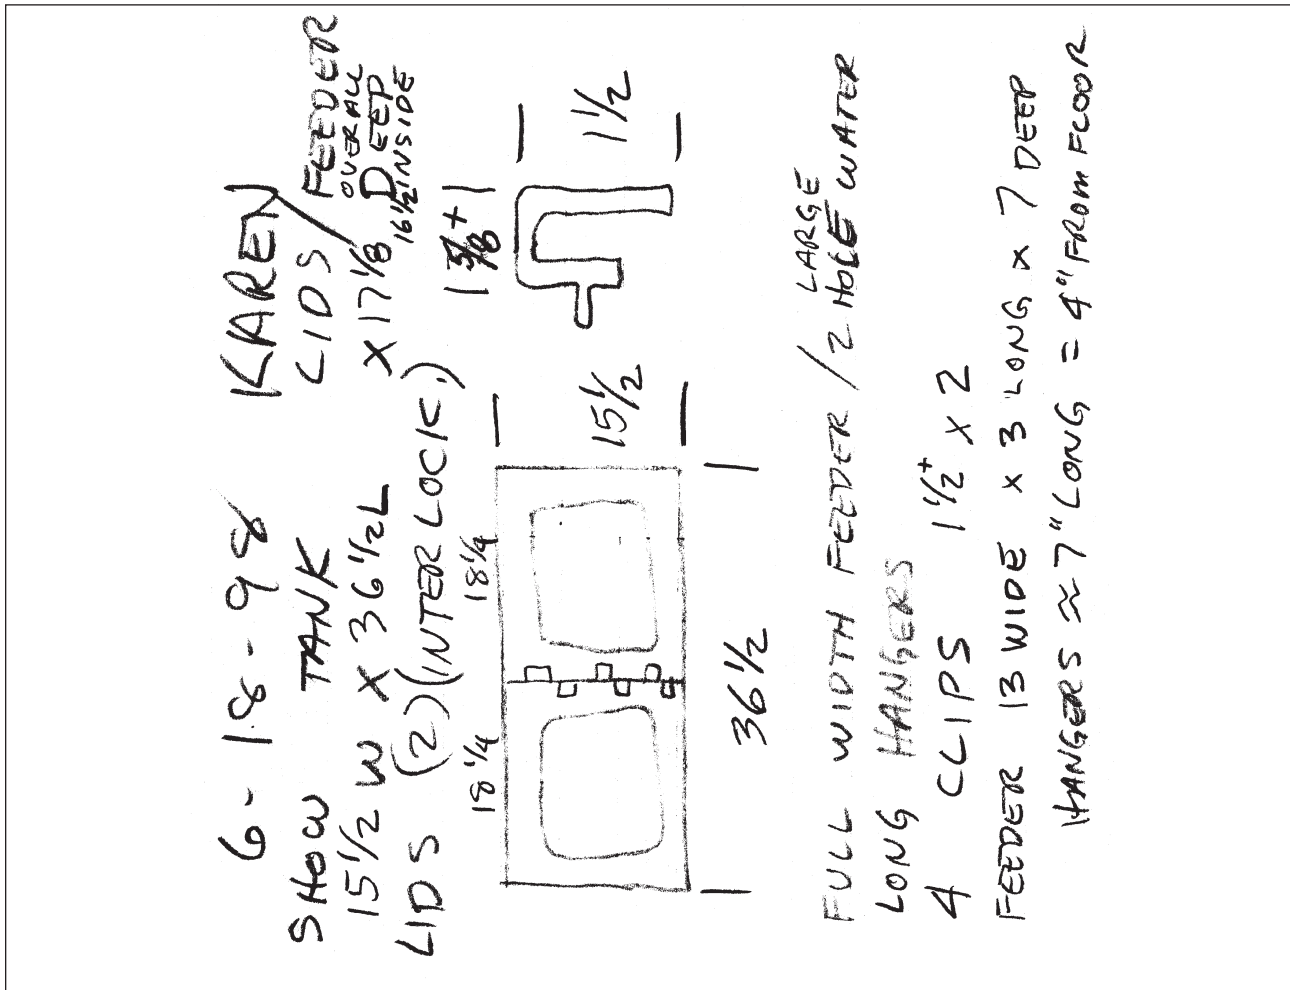 6-18-98 KAREN
SHOW TANK LIDS / FEEDER
15 1/2 W X 36 1/2 L X 17 1/8 OVERALL DEEP
16 1/2 INSIDE
LIDS (2) (INTER LOCK)
1 3/8 + 1
18 1/4 18 1/4
15 1/2
1 1/2
36 1/2
FULL WIDTH FEEDER / 2 LARGE HOLE WATER
LONG HANGERS
4 CLIPS 1 1/2+ X 2
FEEDER 13 WIDE X 3 LONG X 7 DEEP
HANGERS ≈ 7" LONG = 4" FROM FLOOR